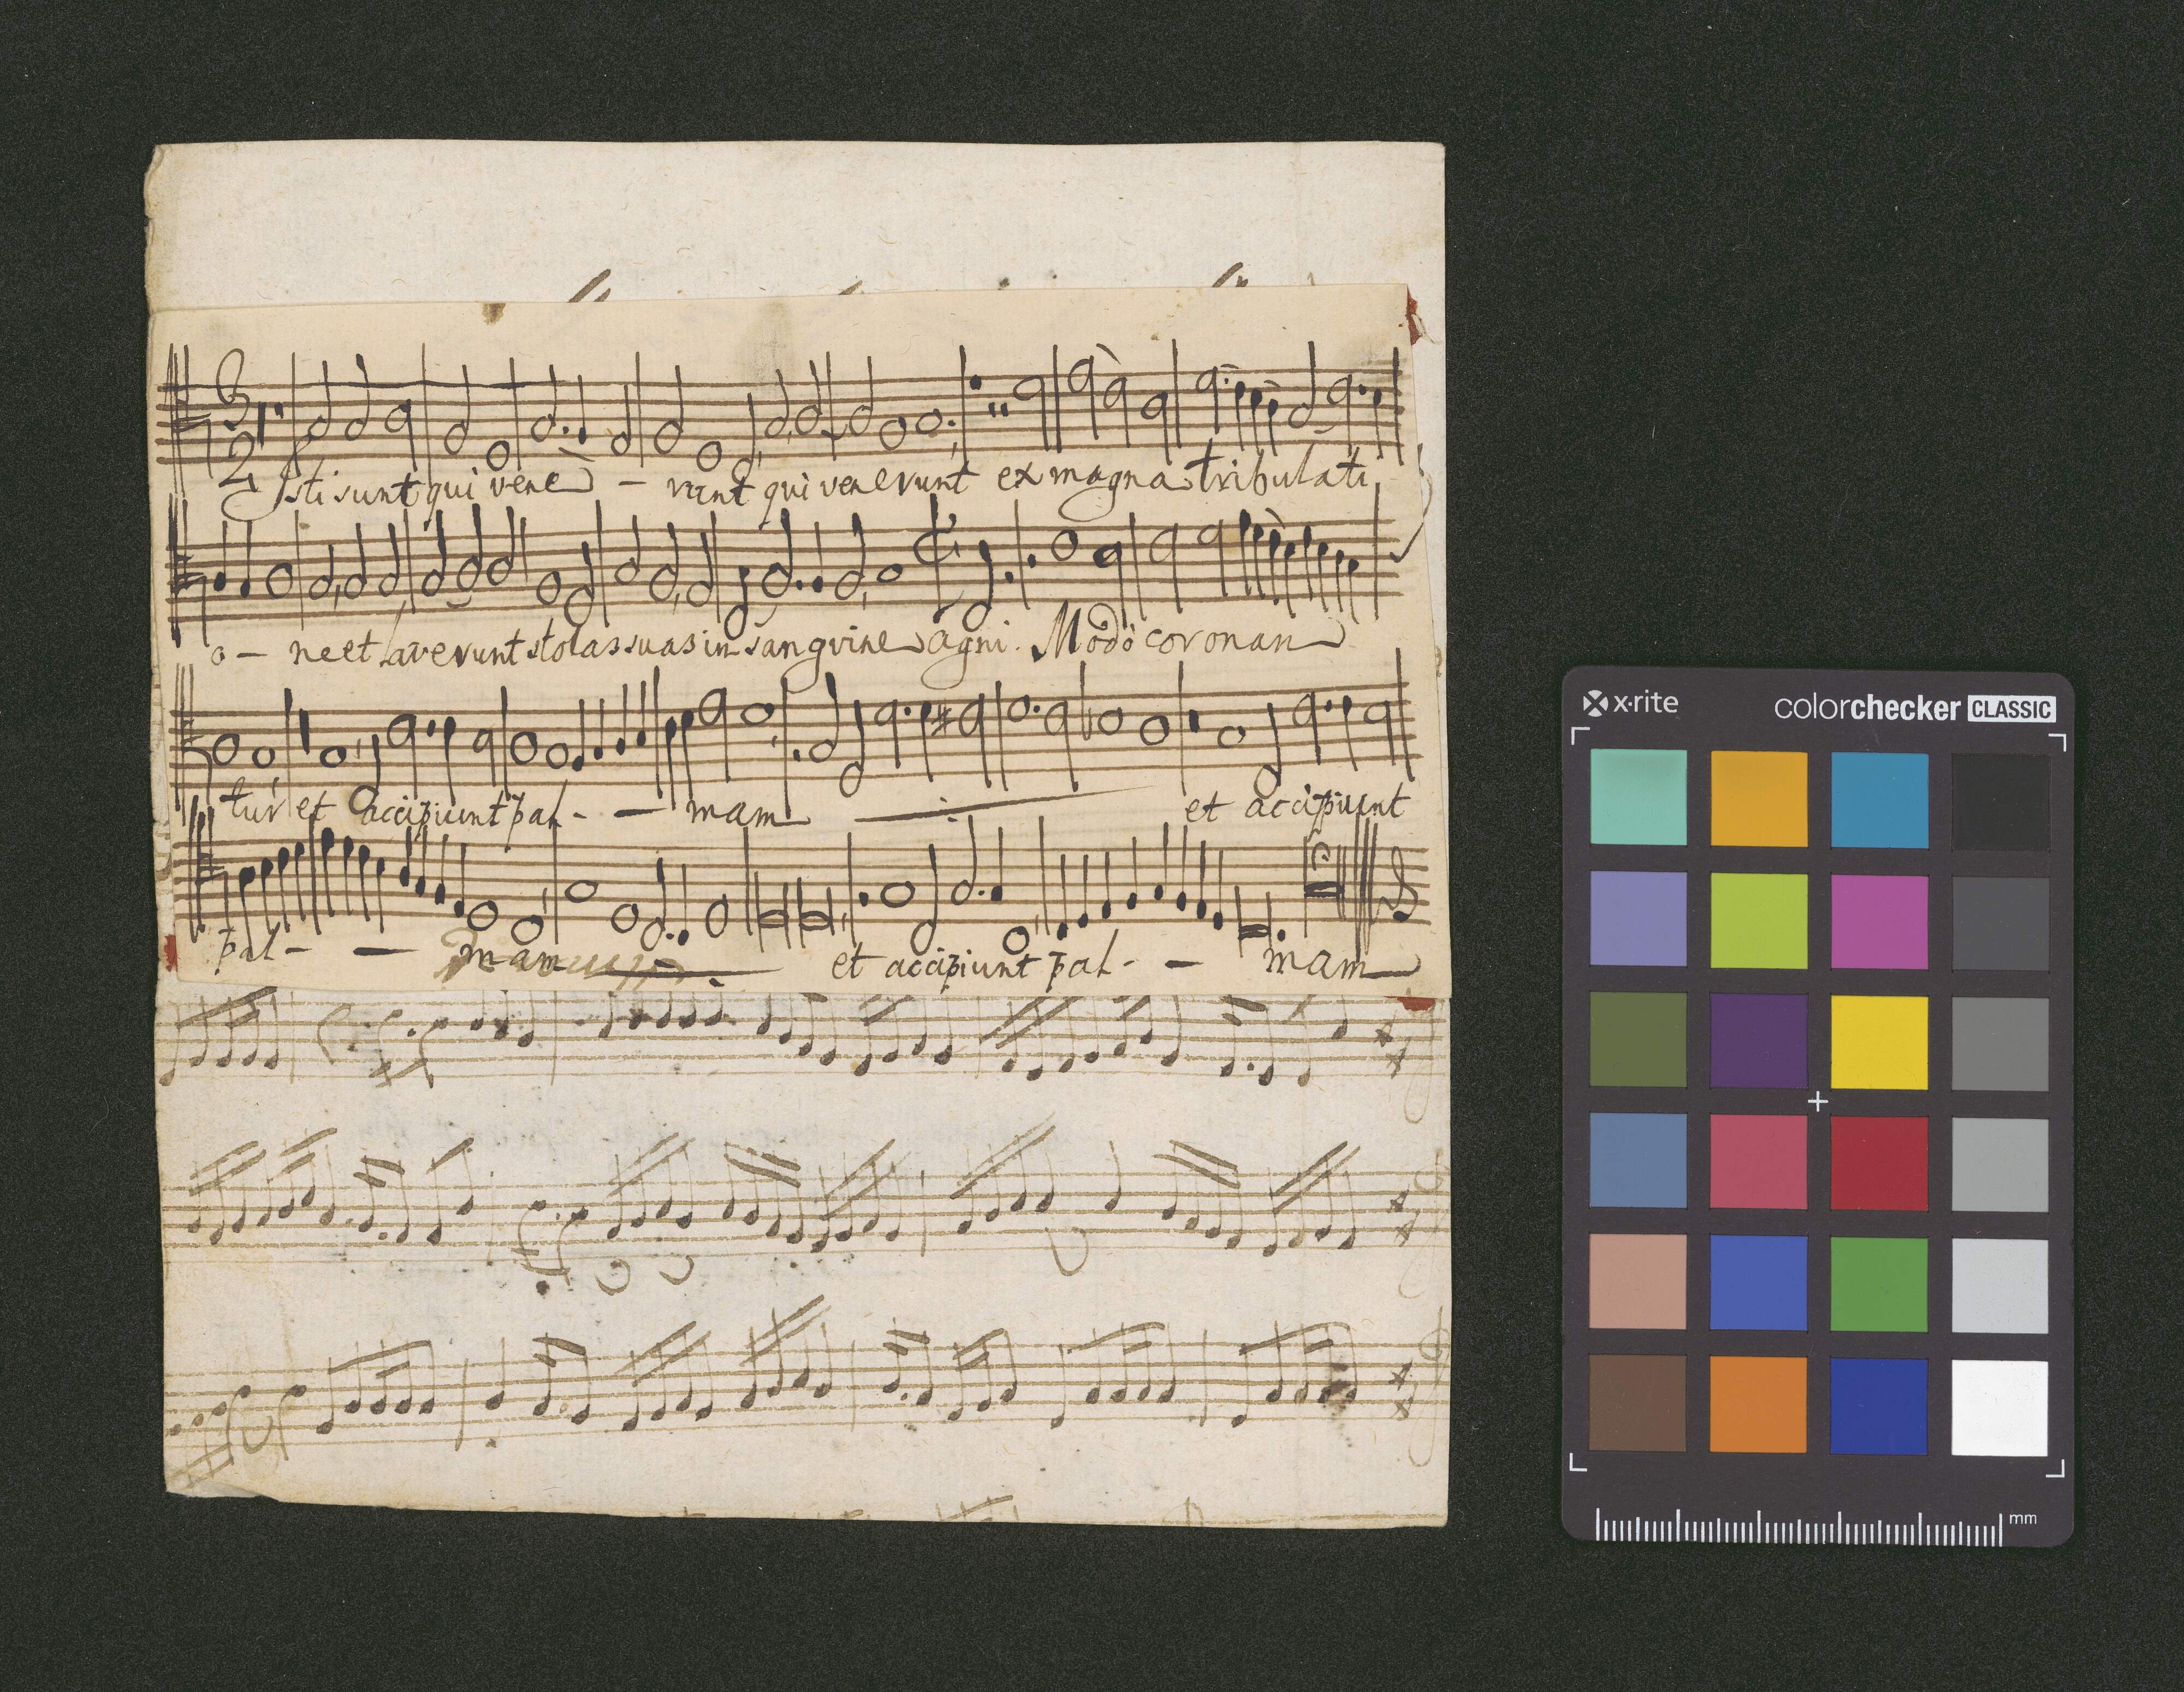 Isti sunt qui vene - runt qui venerunt ex magna tribulati
o - ne et laverunt stolas suas in sanguine agni. Modò coronan
tur et accipiunt pal - - mam et accipiunt
pal - - mam et accipiunt pal - - mam
x·rite colorchecker CLASSIC
mm